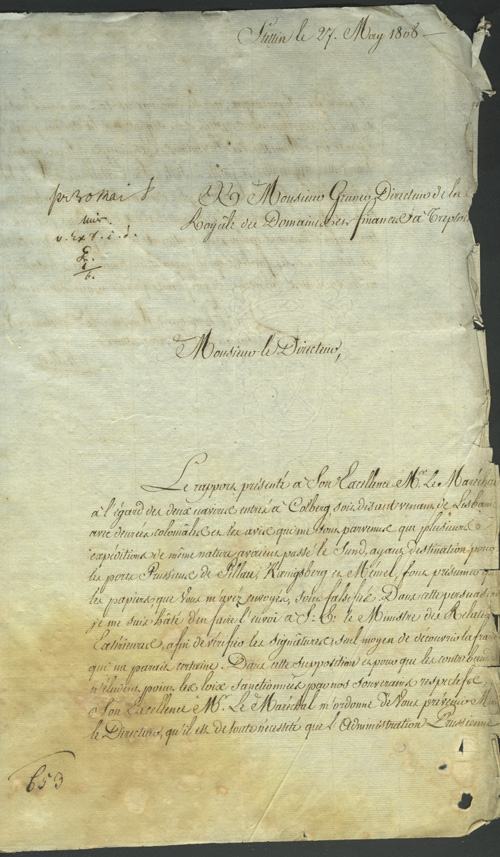 Stettin le 27. May 1808 —
pr 30 Mai
A Monsieur Graner, Directeur de la
Royale des Domaines et finances à Treptow
Monsieur le Directeur,
Le rapport présenté à Son Excellence Mr. Le Maréchal
à l'égard des deux navires entrés à Colberg, soi disant venans de Lisbonne
avec denrées coloniales et les avis qui me sont parvenus que plusieurs
expéditions de même nature avaient passé le Sund, ayans destination pour
les ports Prussiens de Pillau, Kœnigsberg et Memel, font présumer que
les papiers, que Vous m'avez envoyés, soient falsifiés. Dans cette persuasion
je me suis hâté d'en faire l'envoi à S. E. le Ministre des Relations
Extérieures, afin de vérifier les signatures, seul moyen de découvrir la fraude
qui me parait certaine. Dans cette supposition et pour que les contrebandiers
n'éludent point les loix sanctionnées par nos souverains respectifs,
Son Excellence Mr. Le Maréchal m'ordonne de Vous prévenir, M
le Directeur, qu'il est de toute nécessité que l'Administration Prussienne
653